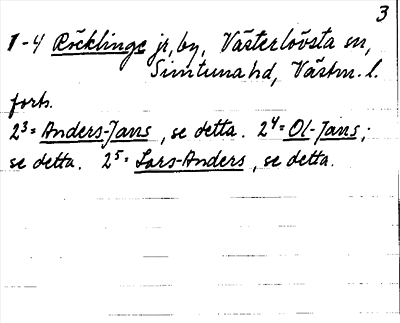 3
1-4 Röcklinge jr, by, Västerlövsta sn,
Simtuna hd, Västm. l.
forts.
2³ = Anders-Jans, se detta. 2⁴ = Ol-Jans,
se detta. 2⁵ = Lars-Anders, se detta.